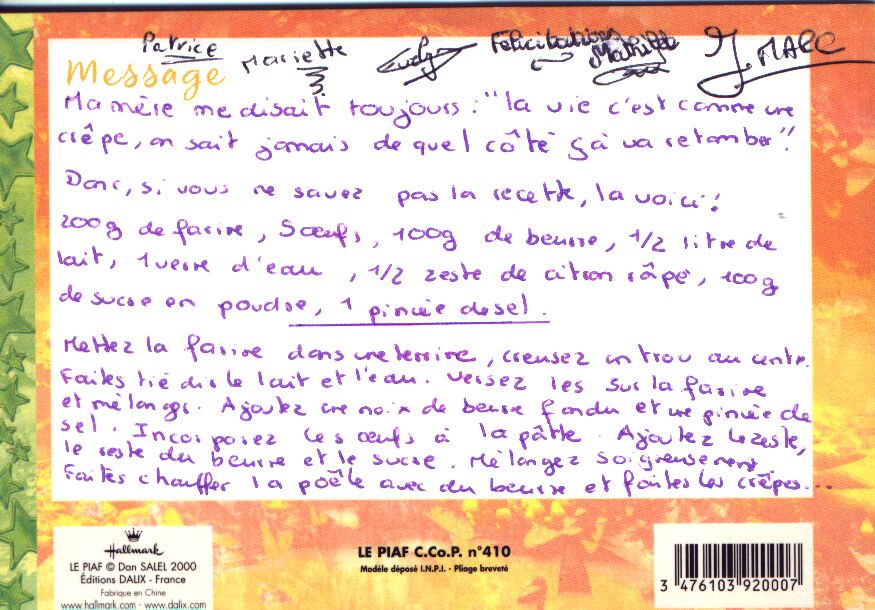 Patrice Mariette Evelyne Felicitations Mathilde J. MARC
Message
Ma mère me disait toujours : "la vie c'est comme une
crêpe, on sait jamais de quel côté çà va retomber"!
Donc, si vous ne savez pas la recette, la voici!
200g de farine, 5 œufs, 100g de beurre, 1/2 litre de
lait, 1 verre d'eau, 1/2 zeste de citron râpé, 100g
de sucre en poudre, 1 pincée de sel.
Mettez la farine dans une terrine, creusez un trou au centre.
Faites tiédir le lait et l'eau. Versez les sur la farine
et mélanger. Ajoutez une noix de beurre fondu et une pincée de
sel. Incorporez les œufs à la pâte. Ajoutez le zeste,
le reste du beurre et le sucre. Mélangez soigneusement.
Faites chauffer la poêle avec du beurre et faites les crêpes...
Hallmark
LE PIAF © Dan SALEL 2000
Éditions DALIX - France
Fabriqué en Chine
www.hallmark.com - www.dalix.com
LE PIAF C.Co.P. n°410
Modèle déposé I.N.P.I. - Pliage breveté
3 476103 920007